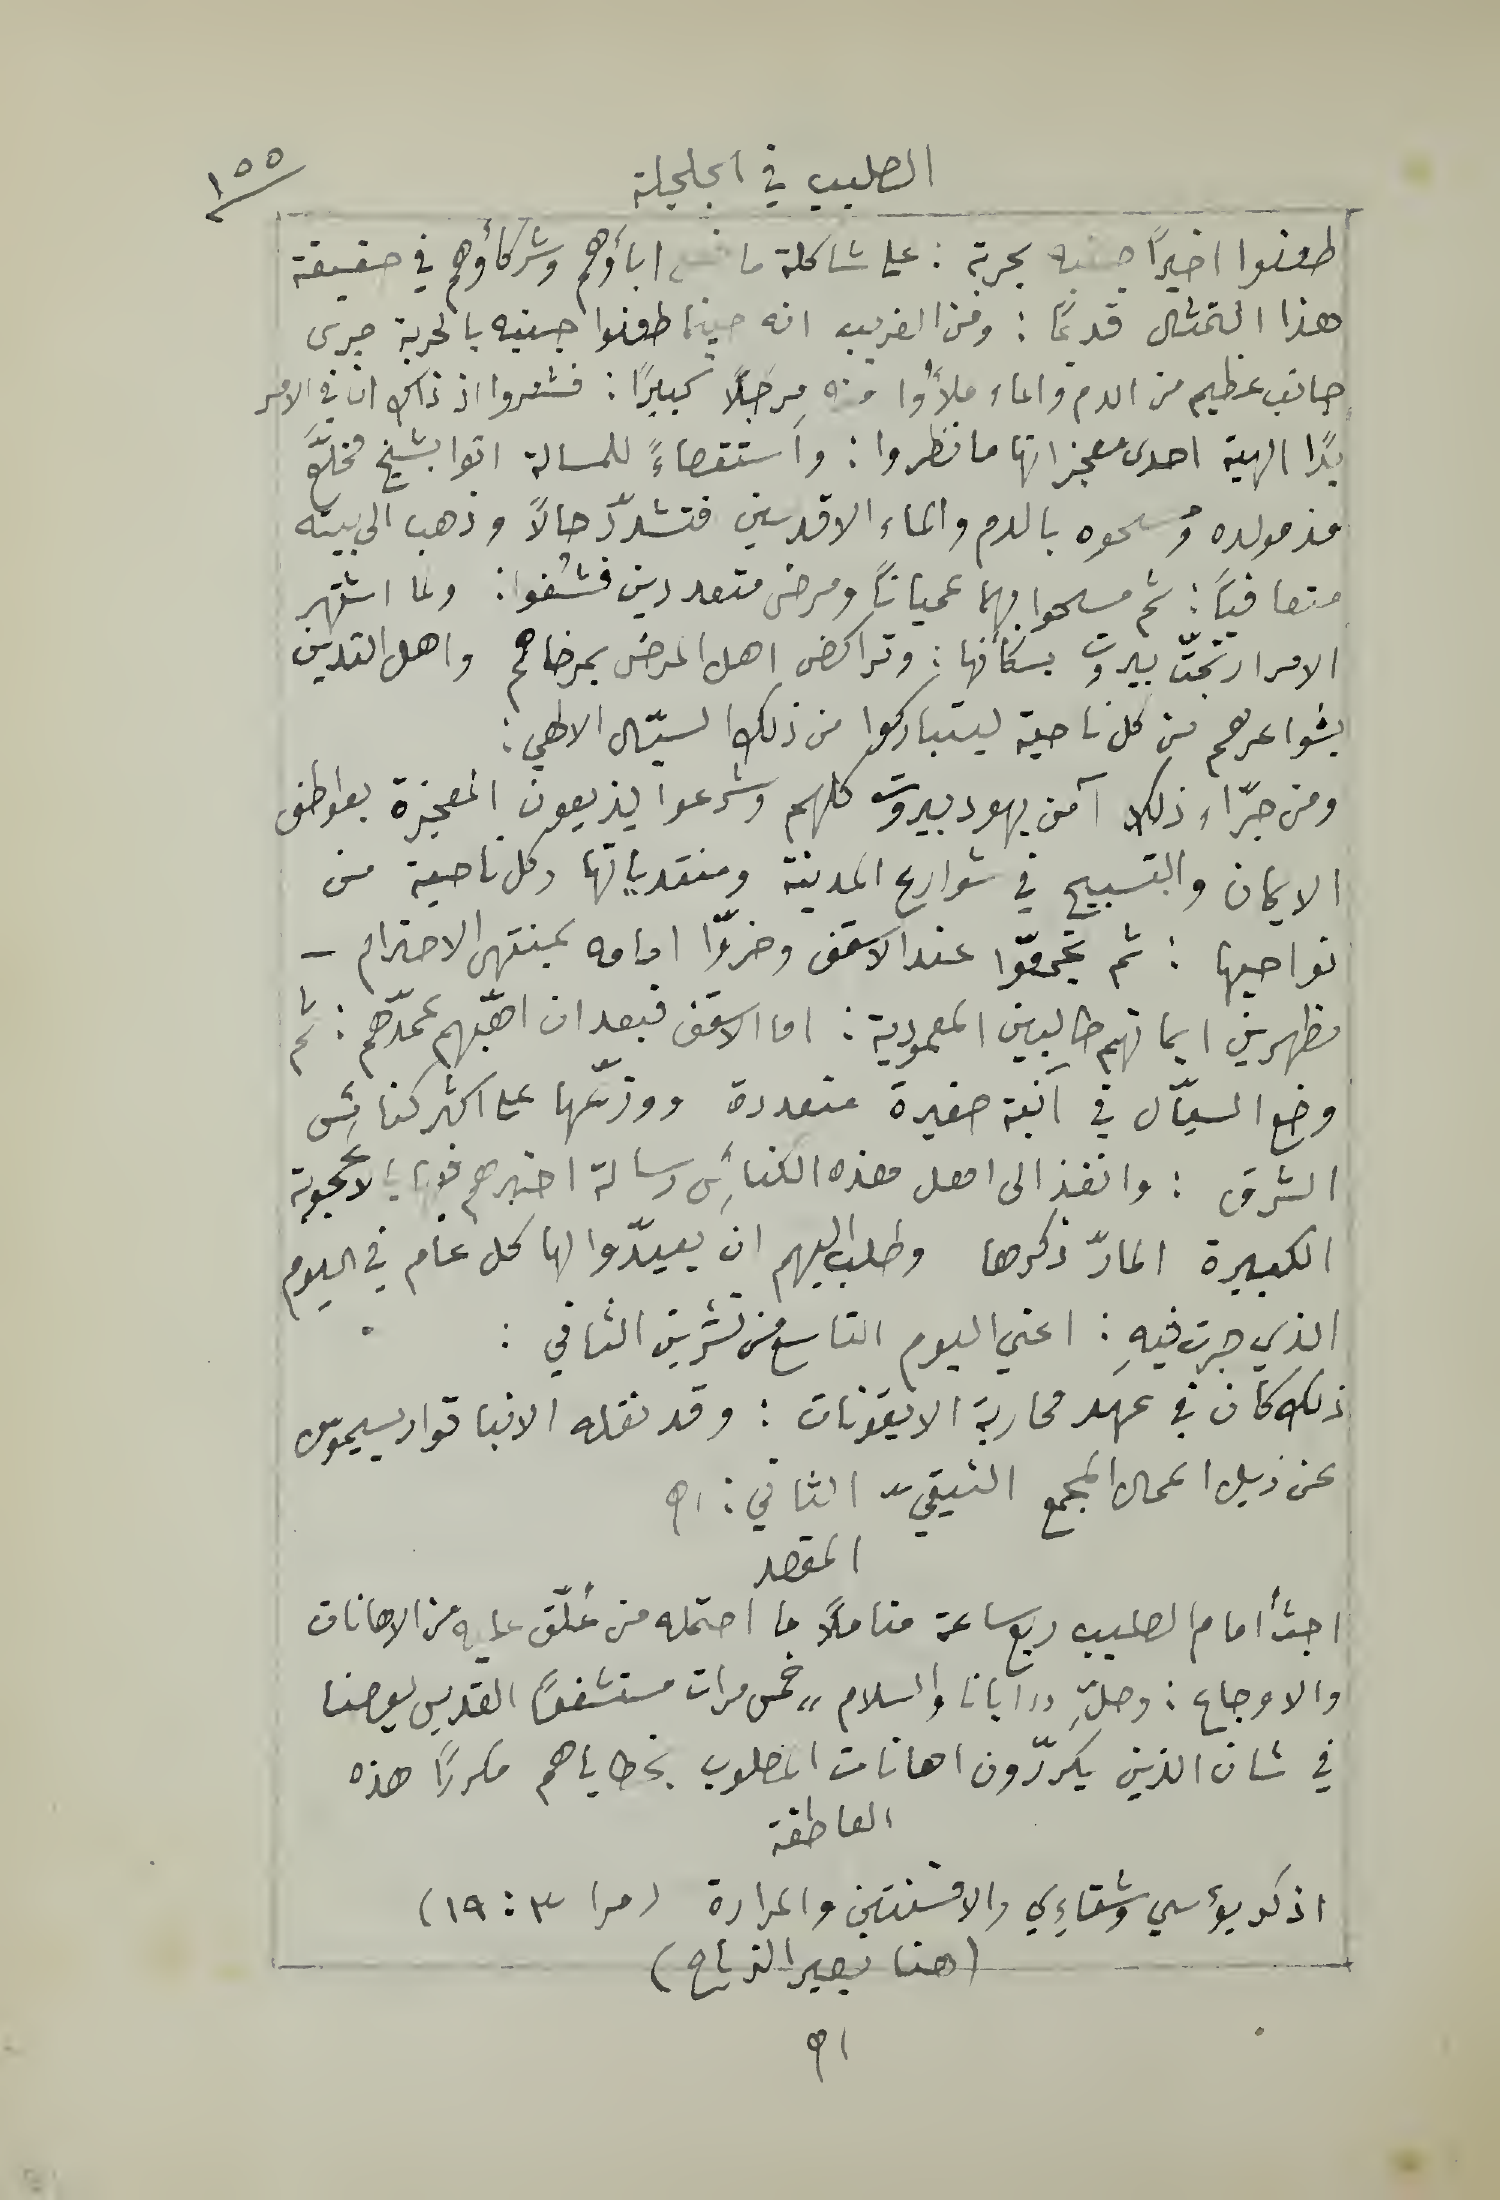 ١٥٥
الصليب في الجلجلة
طعنوا اخيرًا جنبه بحربة : على شاكلة ما اباؤهم وشركاؤهم في حقيقة
هذا التمثال قديمًا : ومن الغريب انه حينما طعنوا جنبه بالحربة جرى
جانب عظيم من الدم والماء ملأوا منه مرجلًا كبيرًا : فشعروا اذ ذاك ان في الامر
يدًا الهية احدى معجزاتها ما نظروا : واستقصاءً للمسالة اتوا بشيخ مخلّع
منذ مولده ومسحوه بالدم والماء الاقدسين فتشدّد حالًا وذهب الى بيته
متعافيًا : ثم مسحوا بهما عميانًا ومرضى متعددين فشُفوا : ولما اشتهر
الامر ارتجّت بيروت بسكانها : وتراكض اهل المرضى بمرضاهم واهل التدين
بشواعرهم من كل ناحية ليتباركوا من ذلك السيّال الالهي :
ومن جرّاء ذلك آمن يهود بيروت كلهم وشرعوا يذيعون المعجزة بعواطف
الايمان والتسبيح في شوارع المدينة ومنتدياتها وكل ناحية من
نواحيها : ثم تجمعّوا عند الاسقف وخرّوا امامه بمنتهى الاحترام –
مظهرين ايمانهم طالبين المعمودية : اما الاسقف فبعد ان اهّبهم عمّدهم : ثم
وضع السيّال في آنية صغيرة متعددة ووزّعها على اكثر كنائس
الشرق : وانفذ الى اهل هذه الكنائس رسالة اخبرهم فيها بالاعجوبة
الكبيرة المارّ ذكرها وطلب اليهم ان يعيّدوا لها كل عام في اليوم
الذي جرت فيهِ : اعني اليوم التاسع من تشرين الثاني :
ذلك كان في عهد محاربة الايقونات : وقد نقله الانبا توادسيموس
عن ذيل اعمال المجمع النيقيّ الثاني : اه
المقصد
اجثُ أمام الصليب ربع ساعة متاملًا ما احتمله من عُلّق عليه من الاهانات
والاوجاع : وصلِّ ,, ابانا والسلام ,, خمس مرات مستشفعًا القديس يوحنا
في شان الذين يكررّون اهانات المصلوب بخطاياهم مكررًا هذه
العاطفة
اذكر بؤسي وشقاءِي والافسنتين والمرارة (مرا ٣ : ١٩)
(هنا يصير الزياح)
اه